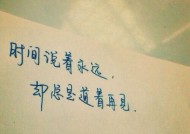 时间说着永远，
却总是道着再见.